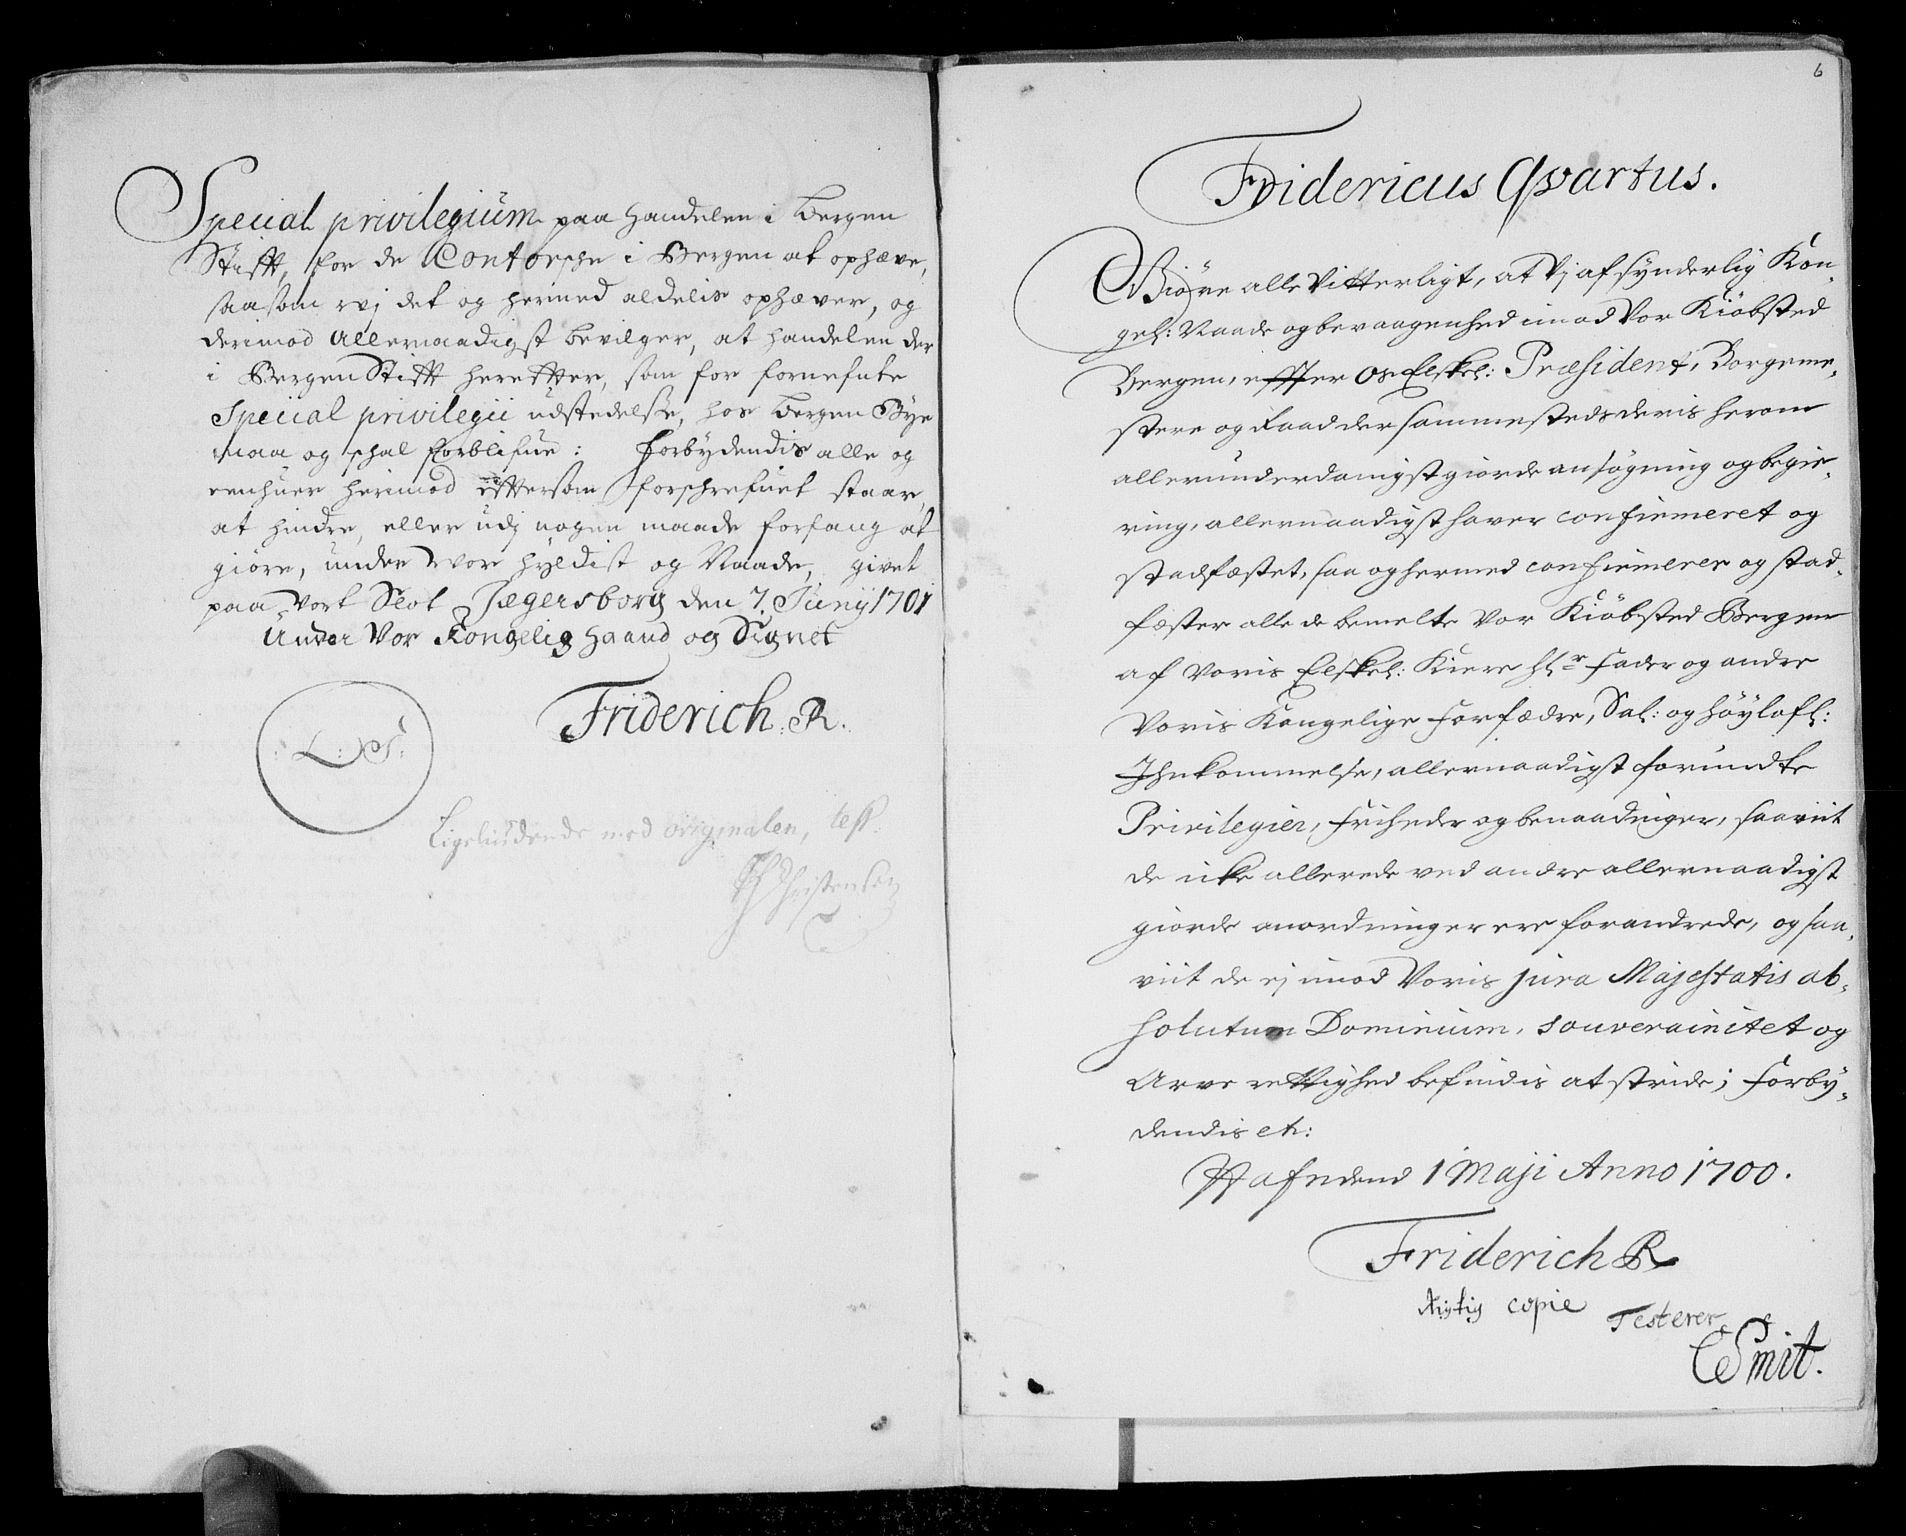 Special privilegium paa handelen i Bergen
Stift, for de Contorske i Bergen at ophæve,
saasom vi det og hermed aldelis ophæver, og
derimod Allernaadigst bevilger, at handelen der
i Bergen Stift herefter, som før fornefnte
Special privilegii udstedelse, hos Bergen Bye
maa og skal forblifue: Forbydendis alle og
eenhuer herimod eftersom forschrefuet staar,
at hindre, eller udj nogen maade forfang at
giøre, under vor hyldist og Naade, givet
paa Vort Slot Jægersborg den 7. Junij 1701
Under Vor Kongelig Haand og Signet
Friderich R.
L: S:
Ligelüdende med originalen, test.
Christensen
6
Fridericus Qvartus.
Giøre alle Vitterligt, at Vj af synderlig Kon-
gel: Naade og bevaagenhed imod Vor Kiøbsted
Bergen, effter Os Elskel: Præsident, Borgeme-
stere og Raad der sammesteds deris herom
allerunderdanigst giorde ansøgning og begie-
ring, allernaadigst haver confirmeret og
stadfæstet, saa og hermed confirmerer og stad-
fæster alle de bemelte Vor Kiøbsted Bergen
af Voris Elskel: Kiere Hr Fader og andre
Voris Kongelige Forfædre, Sal: og høylofl:
Ihukommelse, allernaadigst forundte
Privilegier, Friheder og benaadinger, saaviit
de icke allerede ved andre allernaadigst
giorde anordninger ere forandrede, og saa-
viit de ej imod Voris jura Majestatis ab-
solutum Dominium, souverainitet og
Arve rettighed befindis at stride; Forby-
dendis etc:
Hafn den 1 Maji Anno 1700.
Friderich R
Rigtig copie Testerer
Smit.